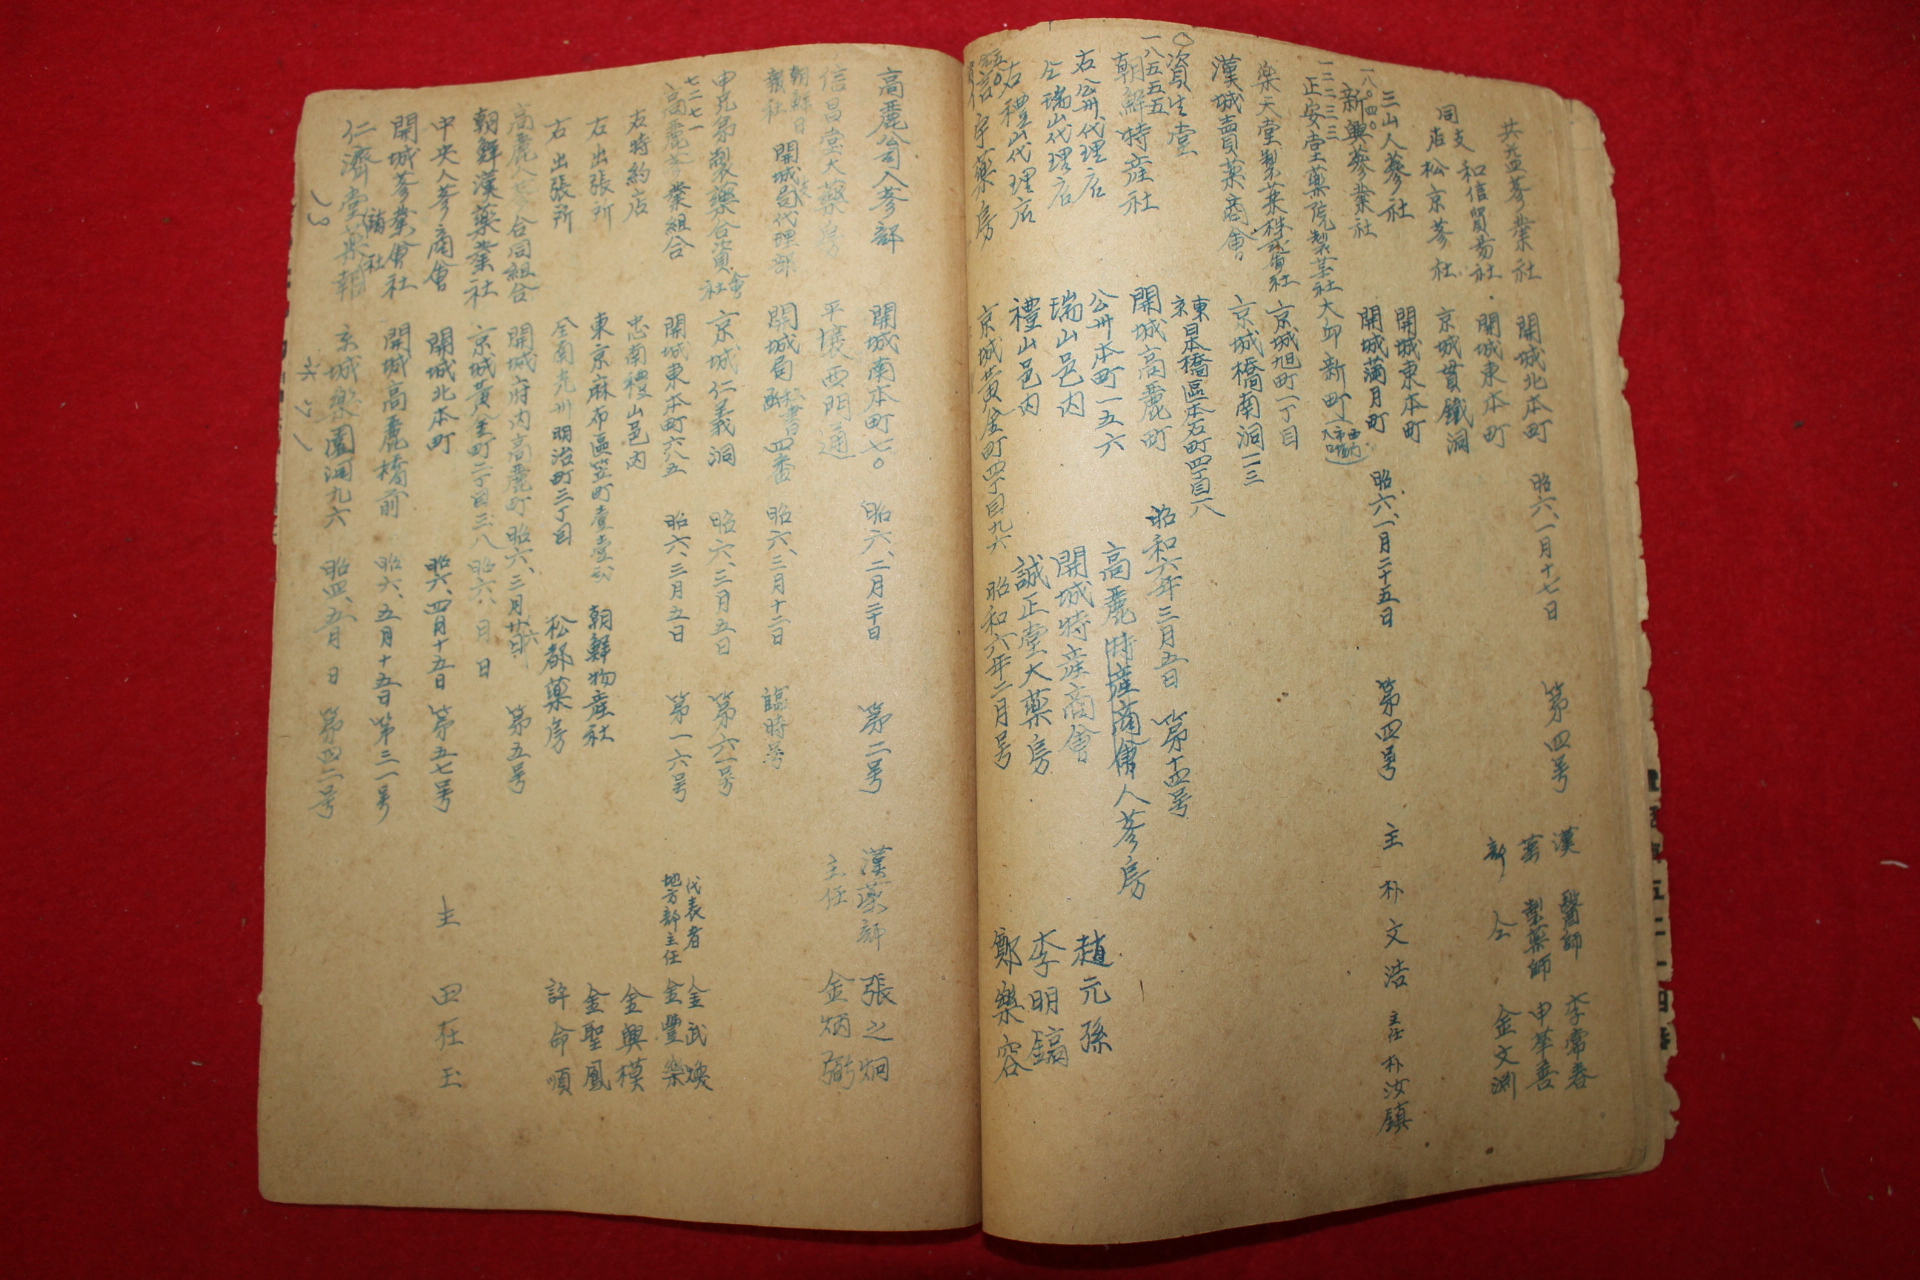 共益蔘業社 開城北本町 昭六、一月十七日 第四号 漢 醫師 李常春
和信貿易社 開城東本町 製藥師 申華善
同支店 松京蔘社 京城貫鐵洞 部 仝 金文淵
三山人蔘社 開城東本町
一八〇四〇
新興蔘業社 開城滿月町 昭六、一月二十五日 第四号 主 朴文浩 主任 朴汝鎮
一二二三三
正安堂藥院製 社 大邱新町
樂天堂製薬株式會社 京城旭町一丁目
漢城賣薬商會 京城橋南洞一二三
〇資生堂 東京日本橋區本石町四丁目八
一八五五五
朝鮮特産社 開城高麗町 昭和六年三月五日 第十四号
右公州代理店 公州本町一五六 高麗特産商會人蔘房
仝瑞山代理店 瑞山邑內 開城特産商會 趙元孫
右禮山代理店 禮山邑內 誠正堂大藥房 李明鎬
宇藥房 京城黄金町四丁目九六 昭和六年二月号 鄭樂容
高麗公人蔘部 開城南本町七〇 昭六、二月二十日 第二号 漢藥部 張之炯
信昌堂大藥房 平壤西門通 主任 金炳弼
朝鮮日報社 開城局代理部 開城局 四番 昭六、三月十二日 臨時号
申兄弟製藥合資會社 京城仁義洞 昭六、三月五日 第六一号
七二七一
高麗蔘業組合 開城東本町六八五 昭六、三月五日 第一六号 代表者 金武煥
地方部主任 金豐樂
右特約店 忠南禮山邑內 金興模
右出張所 東京麻布區笠町壹壹弍 朝鮮物産社 金聖鳳
右出張所 全南光州明治町三丁目 松都藥房 許命順
高麗人蔘合同組合 開城府內高麗町 昭六、三月廿六日 第五号
朝鮮漢藥業社 京城黃金町二丁目三八 昭六、 月 日
中央人蔘商會 開城北本町 昭六、四月十五日 第五七号 主 田在玉
開城蔘業會社 開城高麗橋前 昭六、五月十五日 第三一号
仁濟堂薬報 京城樂園洞九六 昭四、五月 日 第四二号